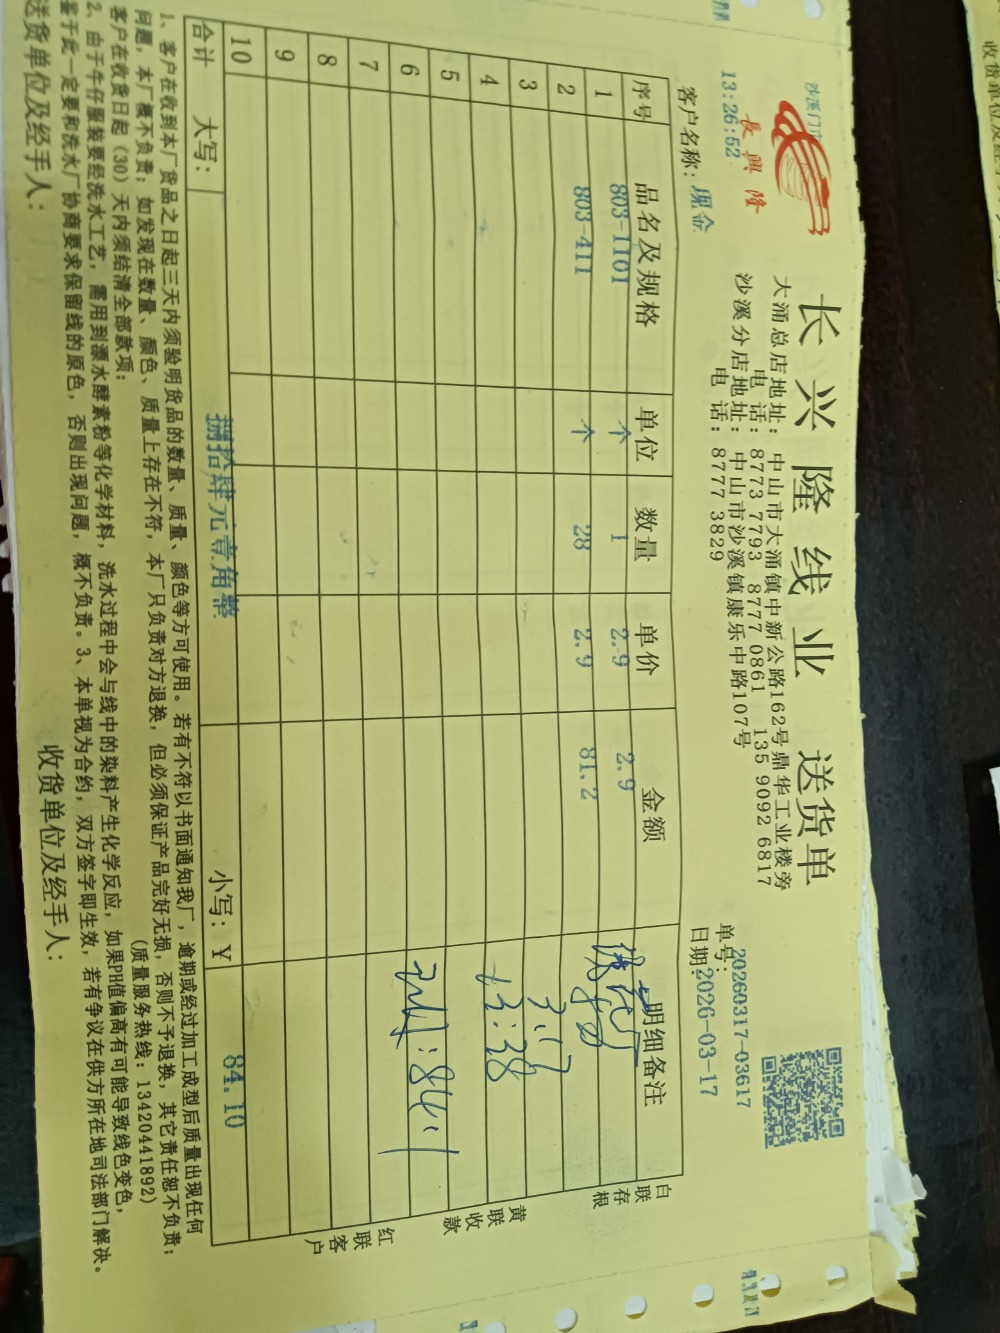 沙溪门市
長興隆
13:26:52
长兴隆线业 送货单
大涌总店地址：中山市大涌镇中新公路162号鼎华工业楼旁
电话：8773 7793 8777 0861 135 9092 6817
沙溪分店地址：中山市沙溪镇康乐中路107号
电话：8777 3829
单号：20260317-03617
客户名称：现金
日期：2026-03-17
序号 品名及规格 单位 数量 单价 金额 明细备注
1 803-1101 个 1 2.9 2.9
2 803-411 个 28 2.9 81.2
3
3.17
4
13:38
5
6
7
8
9
10
合计 大写： 捌拾肆元壹角整 小写：￥ 84.10
白联存根
黄联收款
红联客户
1、客户在收到本厂货品之日起三天内须验明货品的数量、质量、颜色等方可使用。若有不符以书面通知我厂，逾期或经过加工成型后质量出现任何
问题，本厂概不负责；如发现在数量、颜色、质量上存在不符，本厂只负责对方退换，但必须保证产品完好无损，否则不予退换，其它责任恕不负责；
客户在收货日起（30）天内须结清全部款项； (质量服务热线：13420441892)
2、由于牛仔服装要经洗水工艺，需用到漂水酵素粉等化学材料，洗水过程中会与线中的染料产生化学反应，如果PH值偏高有可能导致线色变色，
鉴于此一定要和洗水厂协商要求保留线的原色，否则出现问题，概不负责。3、本单视为合约，双方签字即生效，若有争议在供方所在地司法部门解决。
送货单位及经手人： 收货单位及经手人：